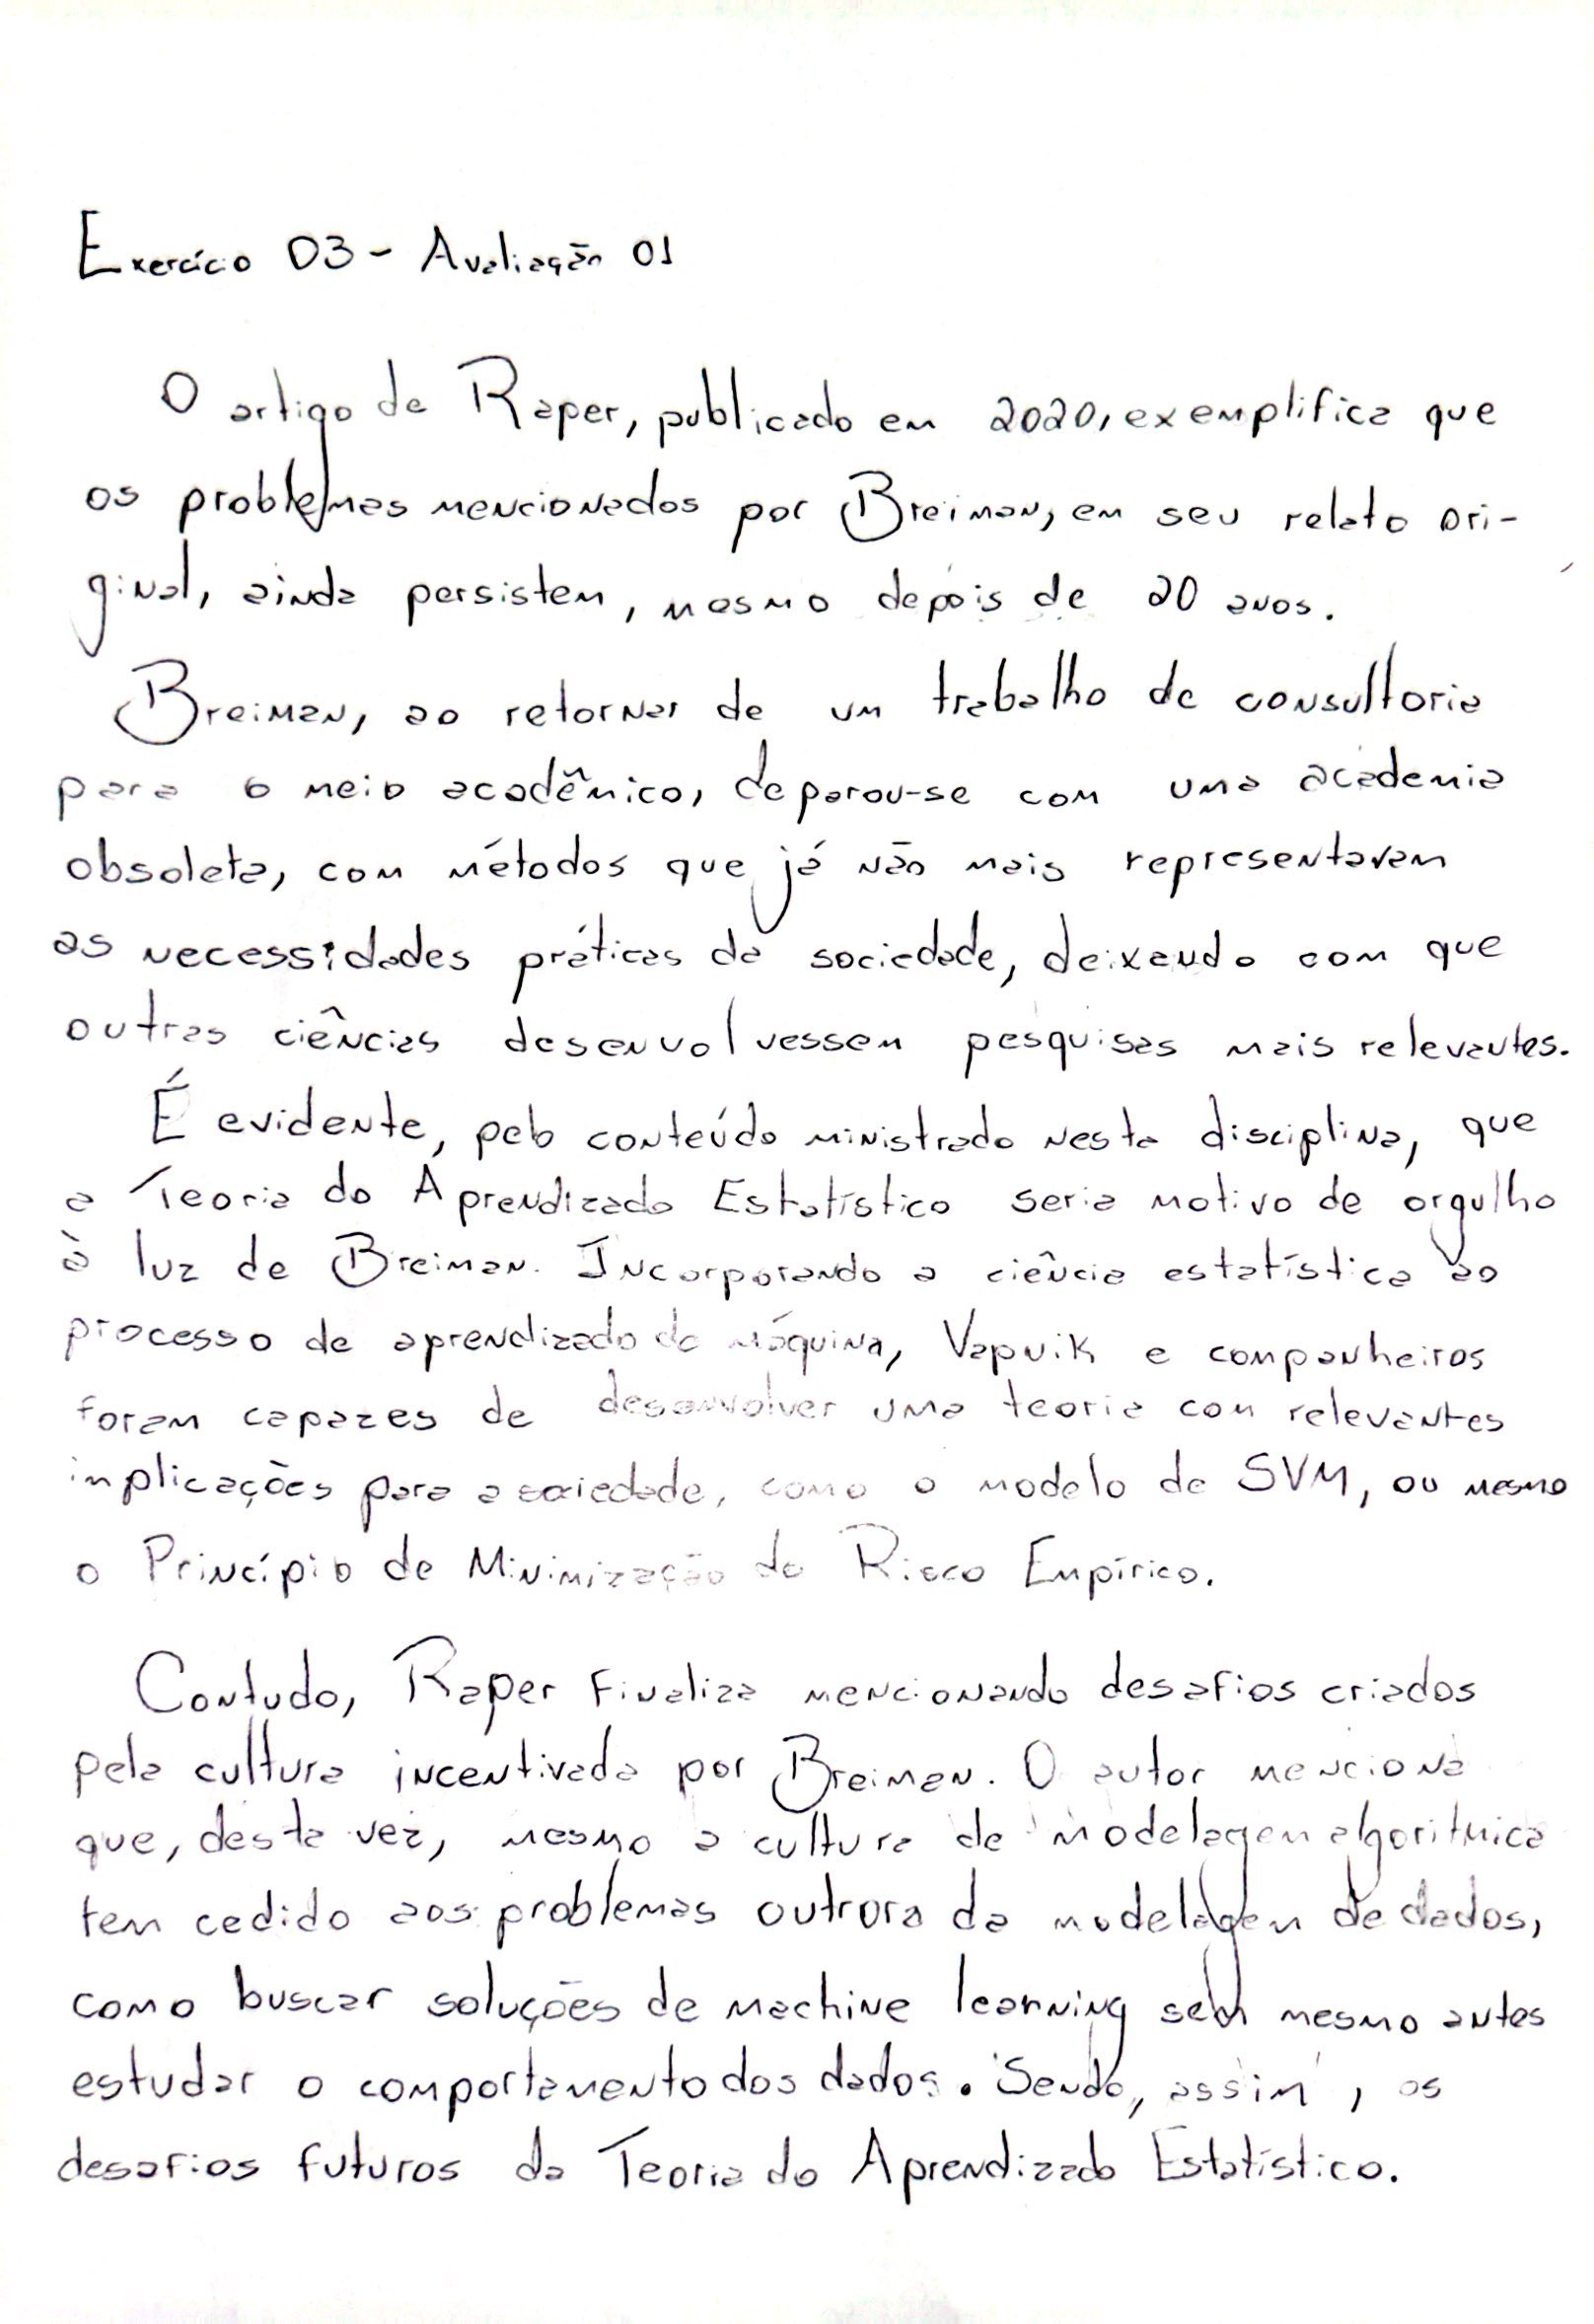 Exercício 03 - Avaliação 01
O artigo de Raper, publicado em 2020, exemplifica que
os problemas mencionados por Breiman, em seu relato ori-
ginal, ainda persistem, mesmo depois de 20 anos.
Breiman, ao retornar de um trabalho de consultoria
para o meio acadêmico, deparou-se com uma academia
obsoleta, com métodos que já não mais representavam
as necessidades práticas da sociedade, deixando com que
outras ciências desenvolvessem pesquisas mais relevantes.
É evidente, pelo conteúdo ministrado nesta disciplina, que
a Teoria do Aprendizado Estatístico seria motivo de orgulho
à luz de Breiman. Incorporando a ciência estatística ao
processo de aprendizado de máquina, Vapnik e companheiros
foram capazes de desenvolver uma teoria com relevantes
implicações para a sociedade, como o modelo de SVM, ou mesmo
o Princípio de Minimização do Risco Empírico.
Contudo, Raper finaliza mencionando desafios criados
pela cultura incentivada por Breiman. O autor menciona
que, desta vez, mesmo a cultura de modelagem algorítmica
tem cedido aos problemas outrora da modelagem de dados,
como buscar soluções de machine learning sem mesmo antes
estudar o comportamento dos dados. Sendo, assim, os
desafios futuros da Teoria do Aprendizado Estatístico.